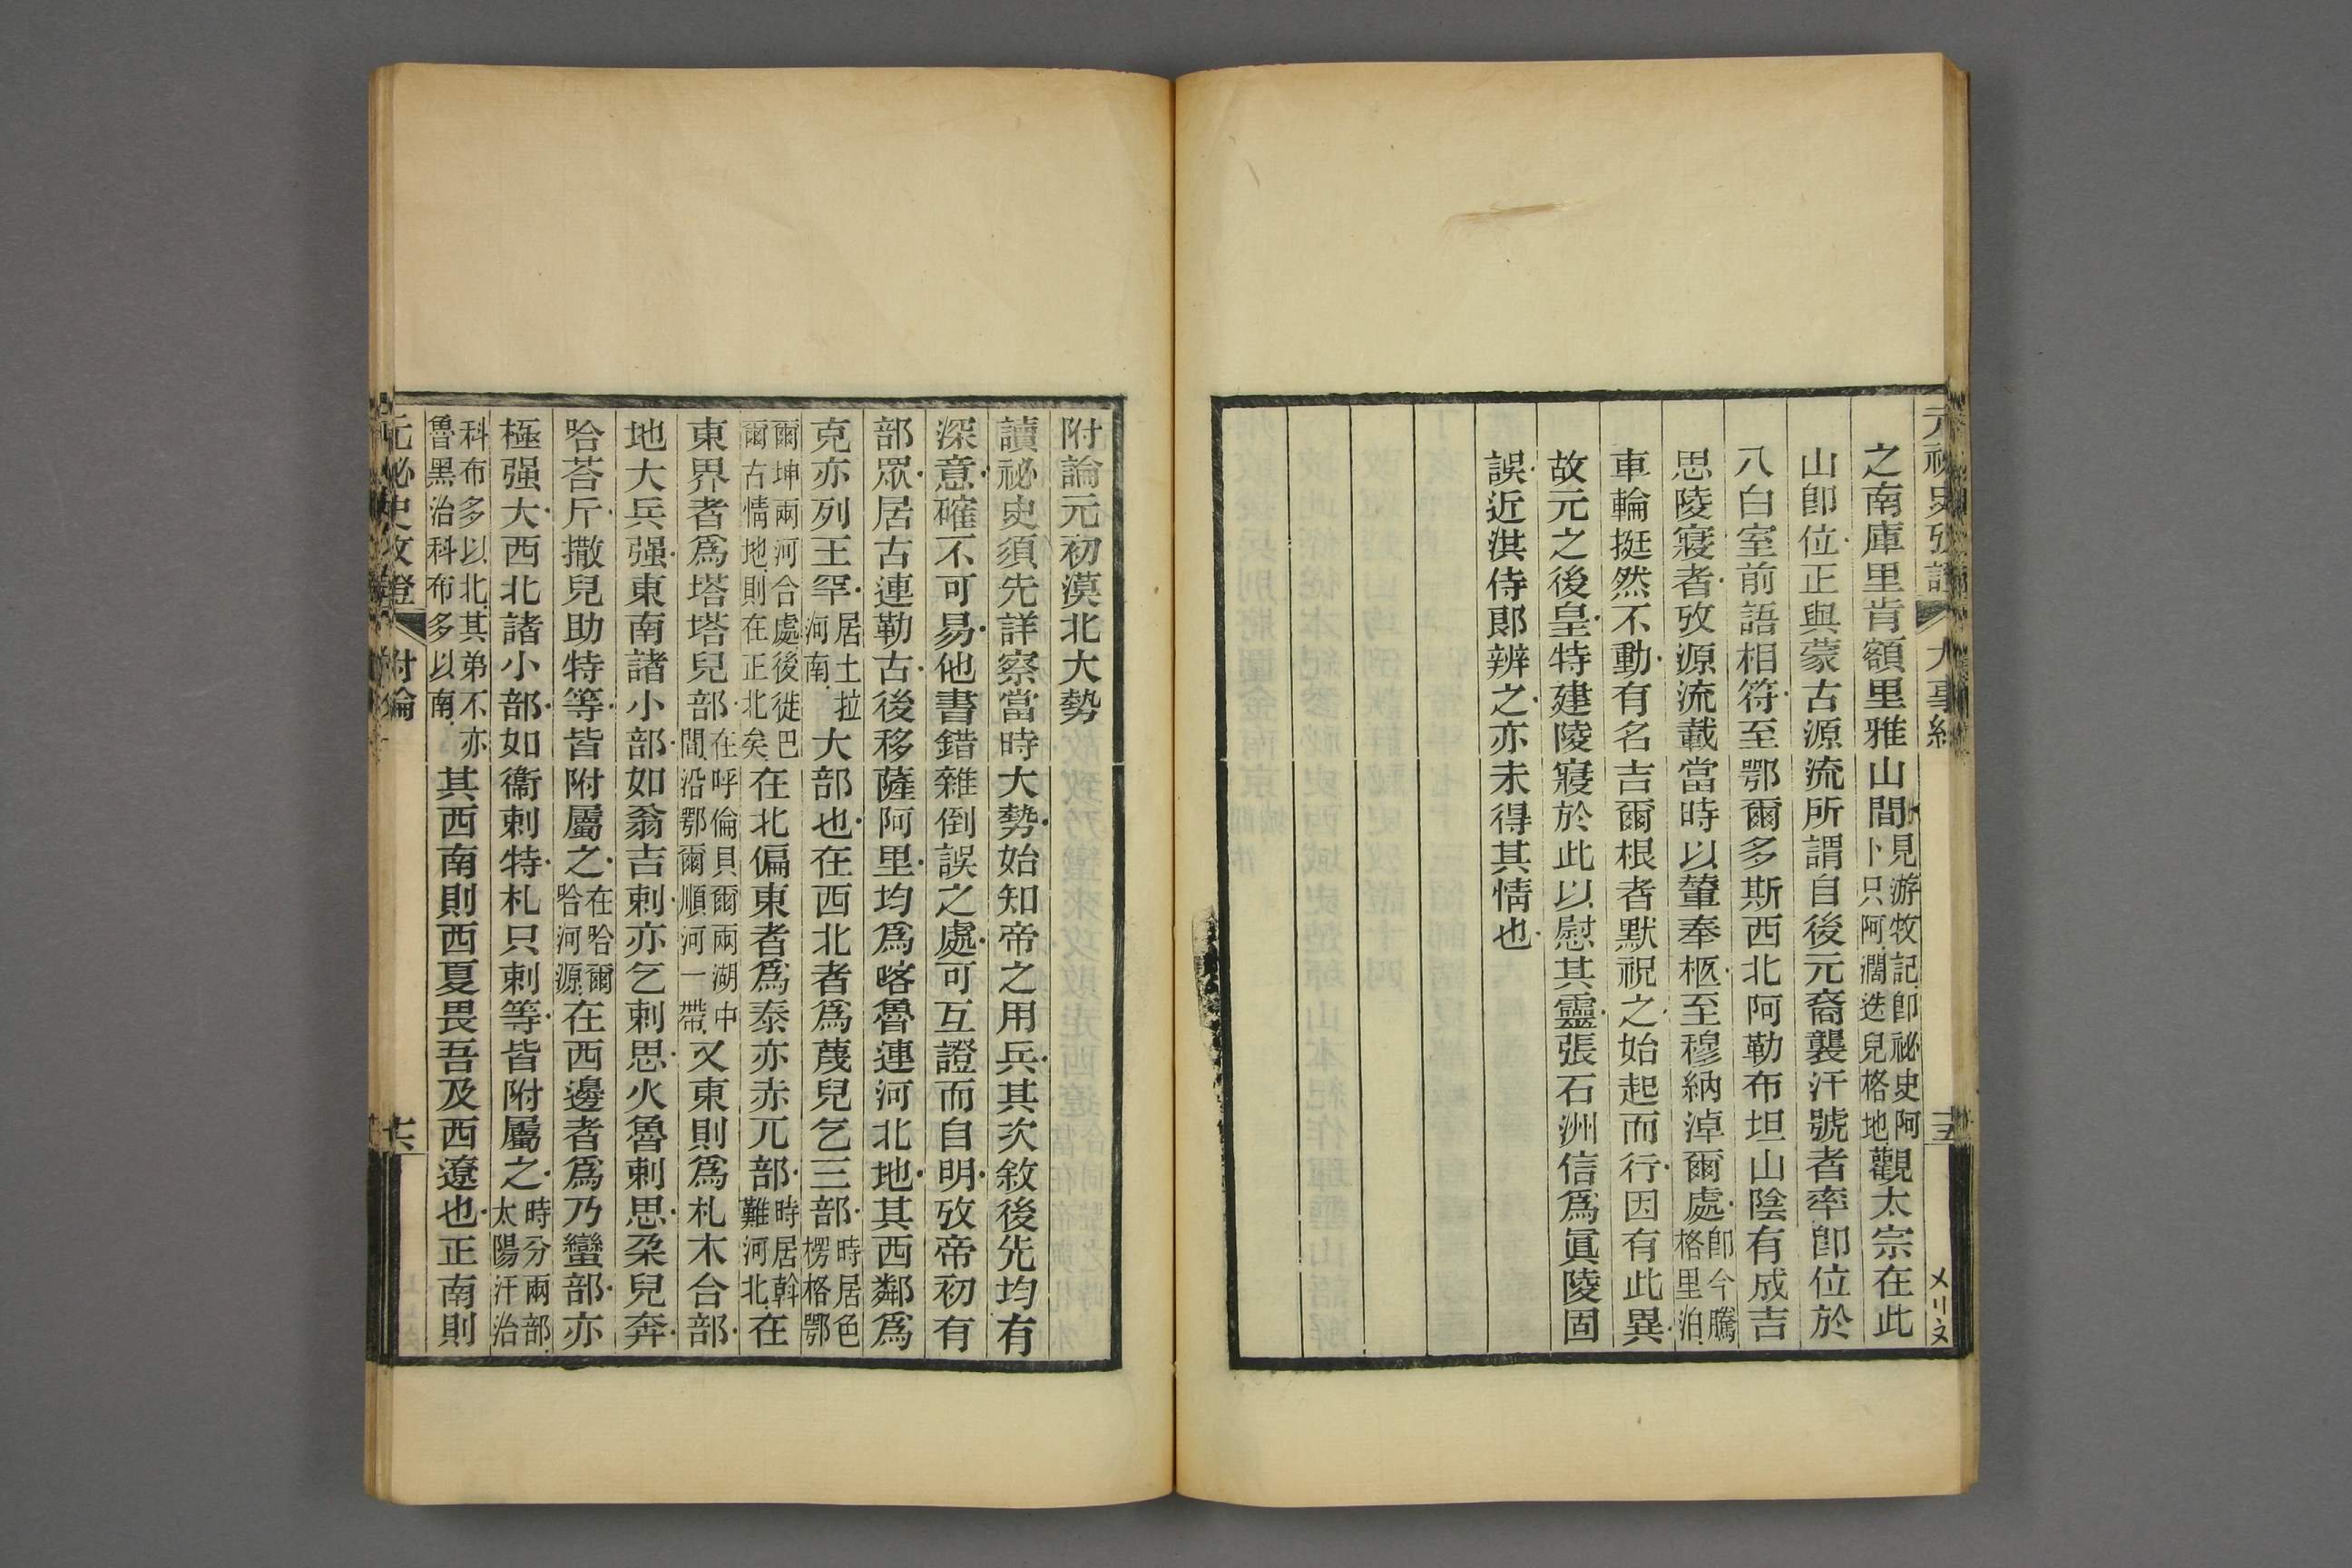 元祕史攷證 大事紀 十五
之南庫里肯額里雅山間見游牧記卽祕史阿卜只阿闊迭兒格地觀太宗在此
山卽位正與蒙古源流所謂自後元裔襲汗號者率卽位於
八白室前語相符至鄂爾多斯西北阿勒布坦山陰有成吉
思陵寢者攷源流載當時以輦奉柩至穆納淖爾處卽今騰格里泊
車輪挺然不動有名吉爾根者默祝之始起而行因有此異
故元之後皇特建陵寢於此以慰其靈張石洲信爲眞陵固
誤近淇侍郞辨之亦未得其情也
附論元初漠北大勢
讀祕史須先詳察當時大勢始知帝之用兵其次敘後先均有
深意確不可易他書錯雜倒誤之處可互證而自明攷帝初有
部眾居古連勒古後移薩阿里均爲喀魯連河北地其西鄰爲
克亦列王罕居土拉河南大部也在西北者爲蔑兒乞三部時居色楞格鄂
爾坤兩河合處後徙巴爾古情地則在正北矣在北偏東者爲泰亦赤兀部時居斡難河北在
東界者爲塔塔兒部在呼倫貝爾兩湖中間沿鄂爾順河一帶又東則爲札木合部
地大兵强東南諸小部如翁吉剌亦乞剌思火魯剌思朶兒奔
哈荅斤撒兒助特等皆附屬之在哈爾哈河源在西邊者爲乃蠻部亦
極强大西北諸小部如衞剌特札只剌等皆附屬之時分兩部太陽汗治
科布多以北其弟不亦魯黑治科布多以南其西南則西夏畏吾及西遼也正南則
元祕史攷證 附論 十六